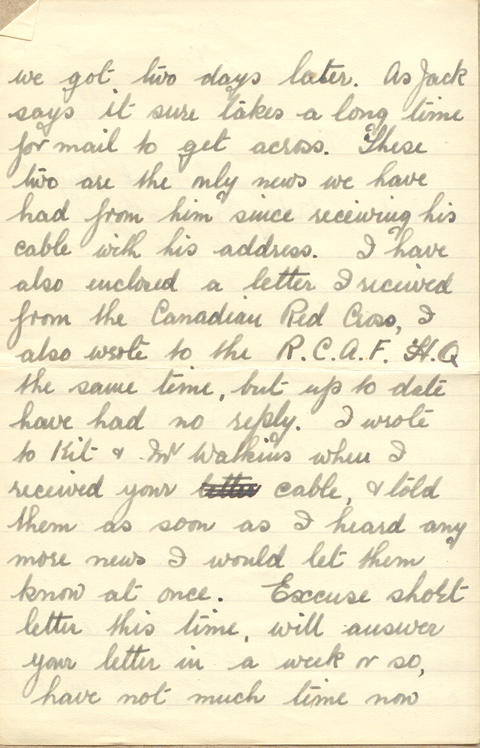 we got two days later. As Jack
says it sure takes a long time
for mail to get across. These
two are the only news we have
had from him since receiving his
cable with his address. I have
also enclosed a letter I received
from the Canadian Red Cross, I
also wrote to the R.C.A.F. H.Q
the same time, but up to date
have had no reply. I wrote
to Kit & Mr Watkins when I
received your letter cable, & told
them as soon as I heard any
more news I would let them
know at once. Excuse short
letter this time, will answer
your letter in a week or so,
have not much time now